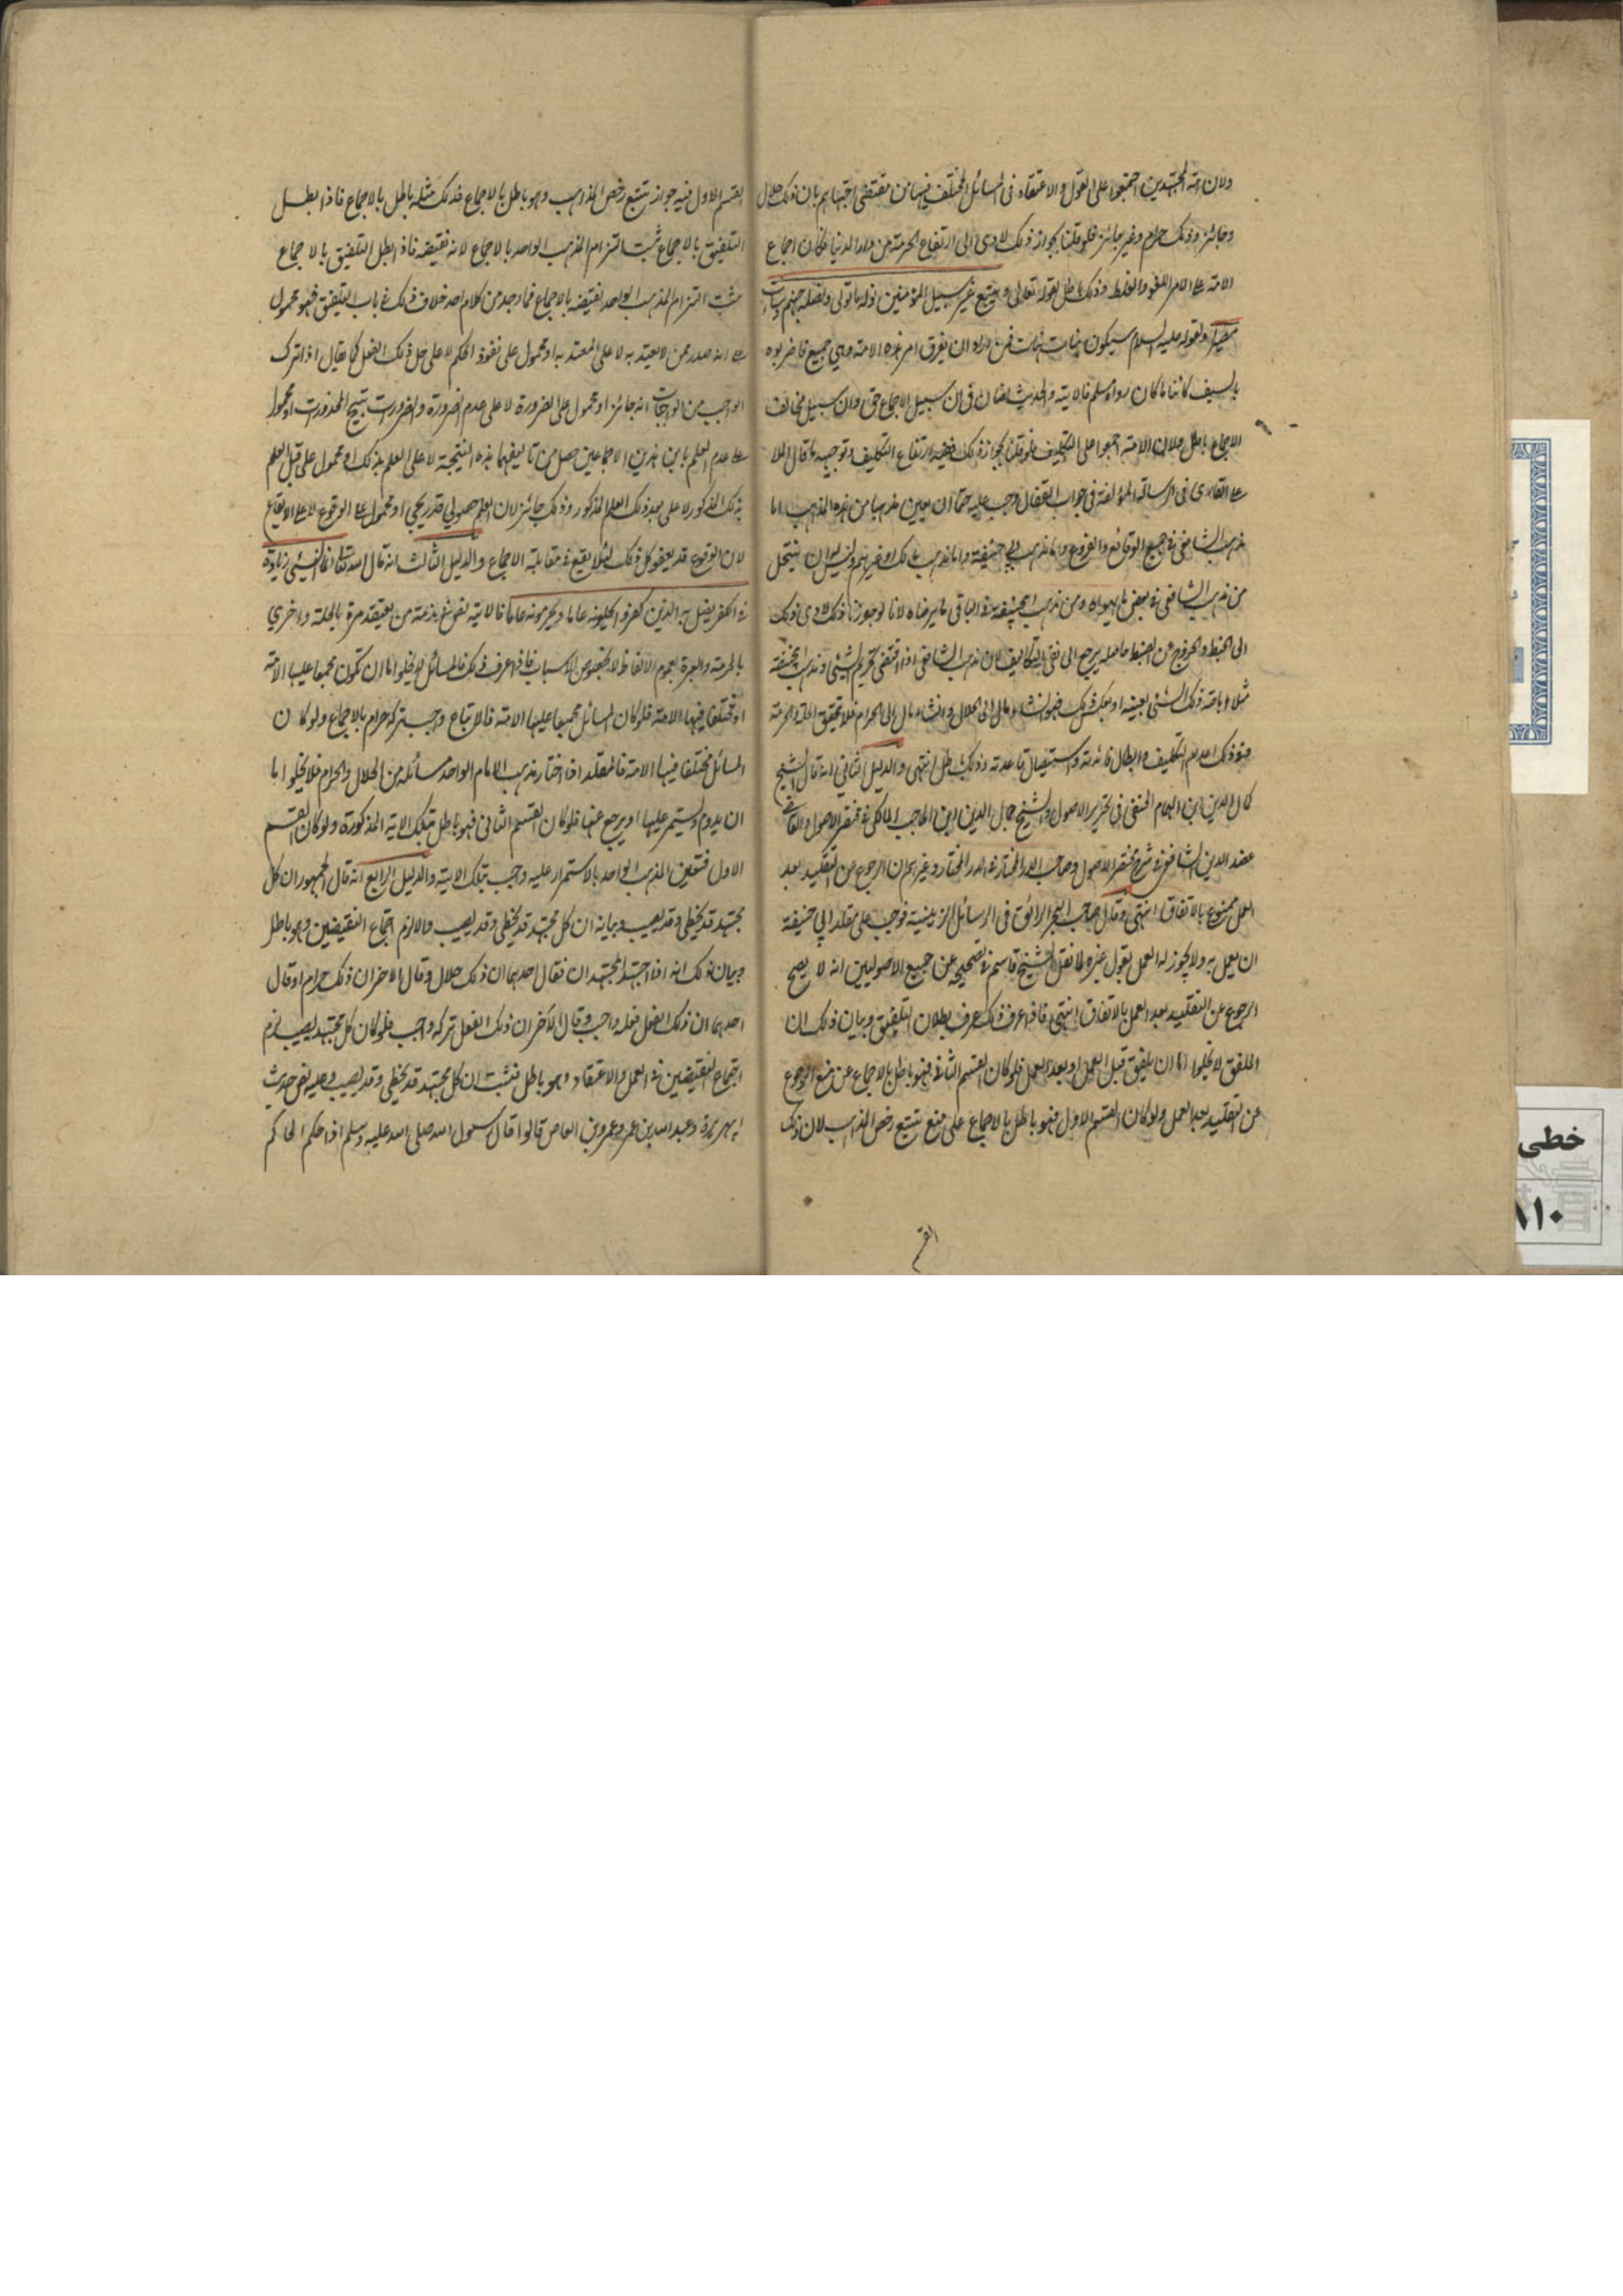 ولان ائمة المجتهدين اجتمعوا على القول والاعتقاد فى المسائل المختلف فيها من مقتضى اجتهادهم بان ذلك حلال
وجائز وذلك حرام وغير جائز فلو قلنا بجواز ذلك لادى الى ارتفاع الحرمة من دار الدنيا فكان اجماع
الامة على الامر اللغو والغلط وذلك باطل لقوله تعالى ويتبع غير سبيل المؤمنين نوله ما تولى ونصله جهنم وساءت
مصيرا ولقوله عليه السلام سيكون هنات هنات فمن اراد ان يفرق امر هذه الامة وهى جميع فاضربوه
بالسيف كائنا ما كان رواه مسلم فالاية والحديث ان سبيل الاجماع حق وان سبيل مخالف
الاجماع باطل ولان الامة اجمعوا على التكليف فلو قلنا بجواز ذلك ففيه ارتفاع التكليف وتوجيهه ما قال الملا
على القارى فى الرسالة المؤلفة فى جواب القفال وجب عليه حتما ان يعين مذهبا من هذه المذاهب اما
مذهب الشافعى فى جميع الوقائع والفروع واما مذهب ابى حنيفة واما مذهب مالك او غيرهم وليس له ان ينتحل
من مذهب الشافعى فى بعض ما يهواه ومن مذهب ابى حنيفة فى الباقى ما يرضاه لانا لو جوزنا ذلك لادى ذلك
الى الخبط والخروج من الضبط حاصله يرجع الى نفى التكاليف لان مذهب الشافعى اذا اقتضى تحريم الشئ ومذهب ابى حنيفة
مثلا اباحة ذلك الشئ بعينه او بعكس ذلك فهو ان شاء مال الى الحلال وان شاء مال الى الحرام فلا تحقق الحلة والحرمة
ففى ذلك اعدام التكليف وابطال فائدته واستيصال قاعدته وذلك باطل انتهى والدليل الثانى انه قال الشيخ
كمال الدين ابن الهمام الحنفى فى تحرير الاصول والشيخ جمال الدين ابن الحاجب المالكى فى مختصر الاصول والقاضى
عضد الدين الشافعى فى شرح مختصر الاصول وصاحب الدر المختار فى الدر المختار وغيرهم ان الرجوع من التقليد بعد
العمل ممنوع بالاتفاق انتهى وقال صاحب البحر الرائق فى الرسائل الزينية فوجب على مقلد ابى حنيفة
ان يعمل به ولا يجوز له العمل بقول غيره لما نقل الشيخ قاسم فى تصحيحه عن جميع الاصوليين انه لا يصح
الرجوع عن التقليد بعد العمل بالاتفاق انتهى فاذا عرف ذلك عرف بطلان التلفيق وبيان ذلك ان
الملفق لا يخلو اما ان يلفق قبل العمل او بعد العمل فلو كان القسم الثانى فهو باطل بالاجماع عن منع الرجوع
عن التقليد بعد العمل ولو كان القسم الاول فهو باطل بالاجماع على منع تتبع رخص المذاهب لان ذلك
القسم
القسم الاول فيه جواز تتبع رخص المذاهب وهو باطل بالاجماع فذلك مثله باطل بالاجماع فاذا بطل
التلفيق بالاجماع ثبت التزام المذهب الواحد بالاجماع لانه نقيضه فاذا بطل التلفيق بالاجماع
ثبت التزام المذهب الواحد نقيضه بالاجماع فما وجد من كلام احد خلاف ذلك فى باب التلفيق فهو محمول
على انه صدر عمن لا يعتد به لا على المعتد به او محمول على نفوذ الحكم لا على حل ذلك الفعل كما يقال اذا ترك
الواجب من الواجبات انه جائز او محمول على الضرورة لا على عدم الضرورة والضرورت تبيح المحذورت او محمول
على عدم العلم بان هذين الاجماعين حصل من تاليفهما هذه النتيجة لا على العلم بذلك او محمول على قبل العلم
بذلك المذكور لا على بعد ذلك العلم المذكور وذلك جائز لان العلم حصولى تدريجى او محمول على الوقوع لا على الايقاع
لان الوقوع قد يعفو كل ذلك لئلا يقع فى مقابلة الاجماع والدليل الثالث انه قال الله تعالى انما النسئ زيادة
فى الكفر يضل به الذين كفروا يحلونه عاما ويحرمونه عاما فالاية نص فى مذمة من يعتقد مرة بالحلة واخرى
بالحرمة والعبرة بعموم الالفاظ لا بخصوص الاسباب فاذا عرف ذلك فالمسائل لا يخلو اما ان تكون مجمعا عليها الامة
او مختلفا فيها الامة فلو كان المسائل مجمعا عليها الامة فالاتباع وجب تركه حرام بالاجماع ولو كان
المسائل مختلفا فيها الامة فالمقلد اذا اختار مذهب الامام الواحد مسائله من الحلال والحرام فلا يخلو اما
ان يدوم ويستمر عليها او يرجع عنها فلو كان القسم الثانى فهو باطل بتلك الاية المذكورة ولو كان القسم
الاول فتعين المذهب الواحد بالاستمرار عليه وجب بتلك الاية والدليل الرابع انه قال الجمهور ان كل
مجتهد قد يخطى وقد يصيب وبيانه ان كل مجتهد قد يخطى وقد يصيب والا لزم اجتماع النقيضين وهو باطل
وبيان ذلك انه اذا اجتهد المجتهدان فقال احدهما ان ذلك حلال وقال الاخر ان ذلك حرام او قال
احدهما ان ذلك الفعل فعله واجب وقال الآخر ان ذلك الفعل تركه واجب فلو كان كل مجتهد يصيب لزم
اجتماع النقيضين فى العمل والاعتقاد وهو باطل فثبت ان كل مجتهد قد يخطى وقد يصيب وعليه نص حديث
ابى هريرة وعبد الله بن عمر وعمرو بن العاص قالوا قال رسول الله صلى الله عليه وسلم اذا حكم الحاكم
خطى